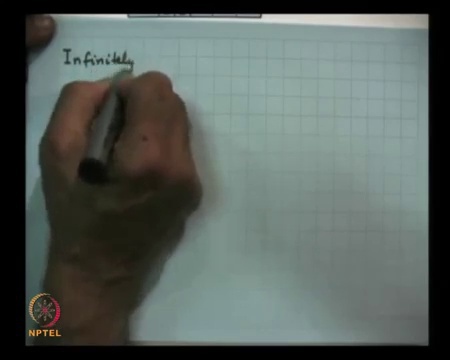 Infinitely
NPTEL